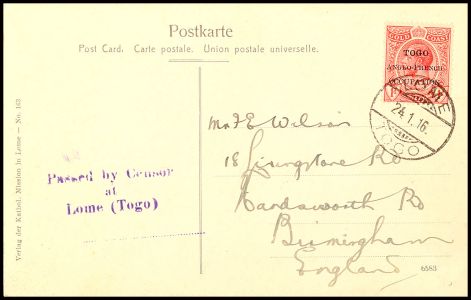 Postkarte
Post Card. Carte postale. Union postale universelle.
GOLD COAST
TOGO
ANGLO-FRENCH
OCCUPATION
PALIME
24.1.16.
TOGO
Mr F E Wilson
18 Livingstone Rd
Handsworth Rd
Birmingham
England
Passed by Censor
at
Lome (Togo)
Verlag der Kathol. Mission in Lome — No. 163
6583